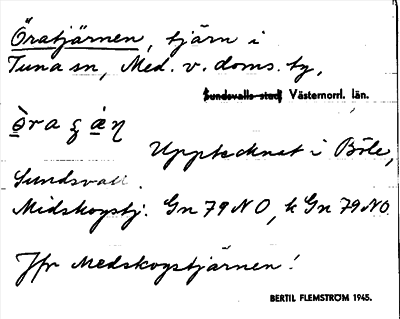 Öratjärnen, tjärn i
Tuna sn, Med. v. doms. ty,
Sundsvalls stad, Västernorrl. län.
Upptecknat i Böle,
Sundsvall.
Midskogstj. Gn 79 N O, k Gn 79 N O.
Jfr Medskogstjärnen!
BERTIL FLEMSTRÖM 1945.